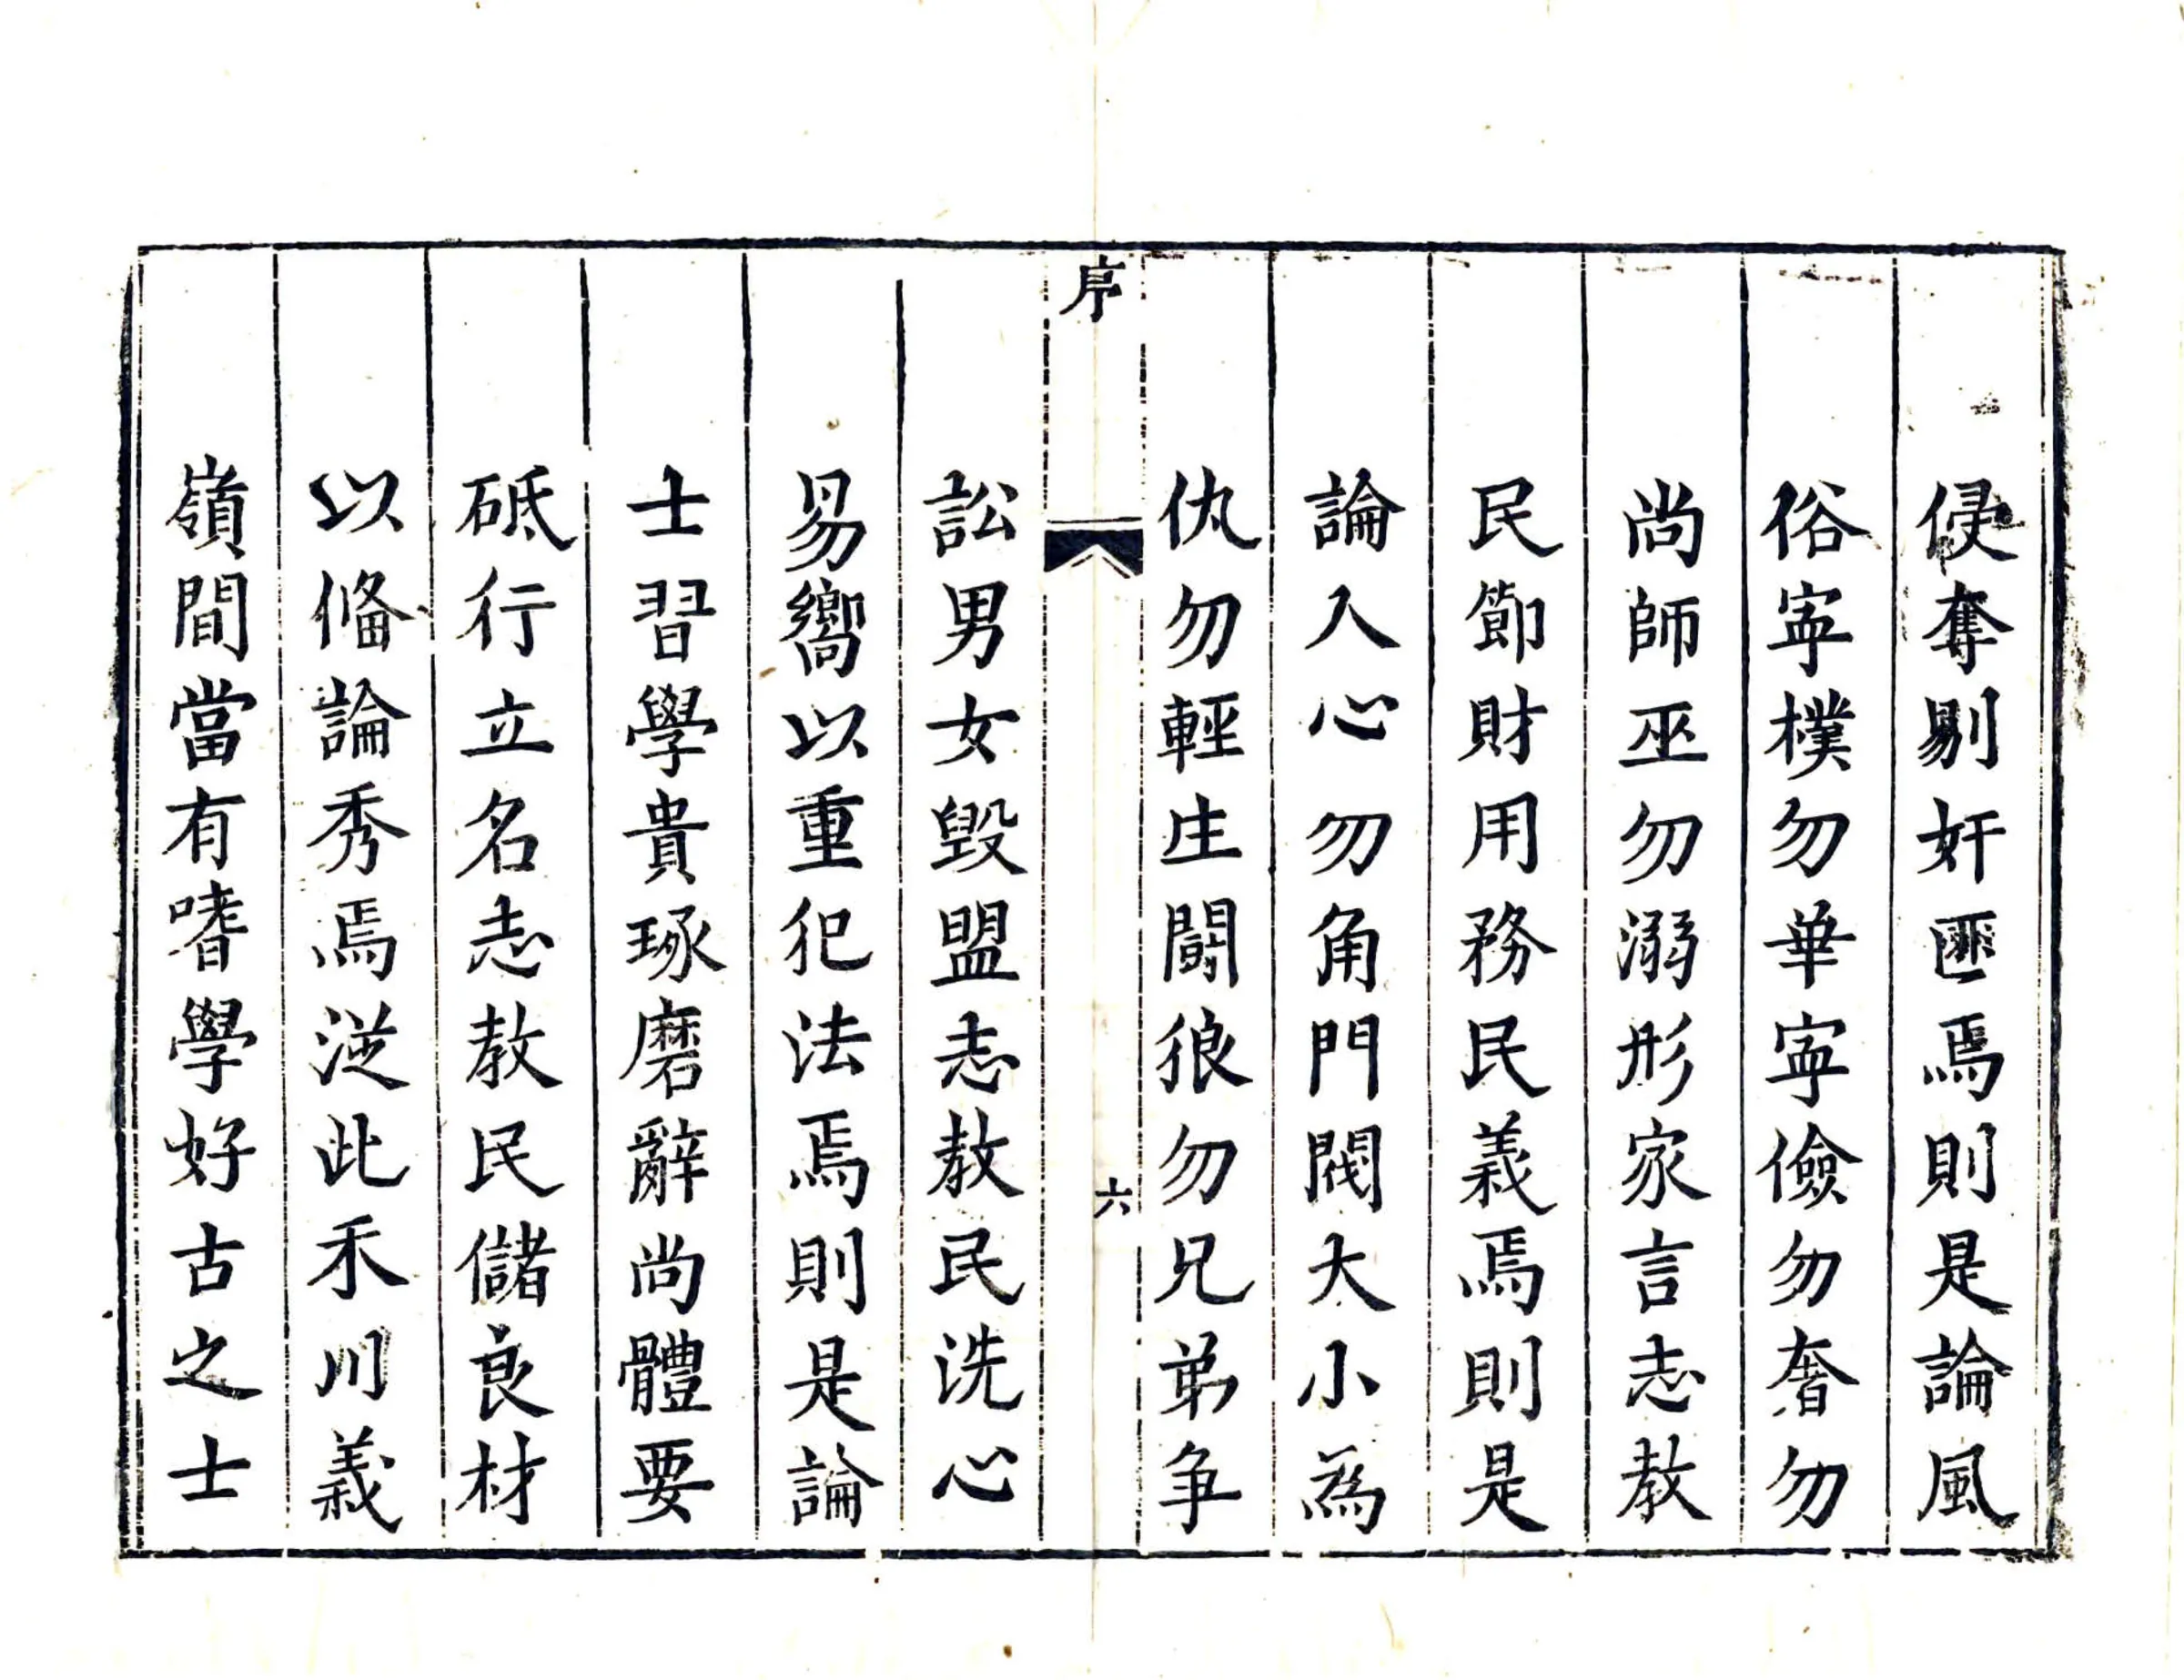 侵奪剔奸匪焉則是論風
俗寧樸勿華寧儉勿奢勿
尚師巫勿溺形家言志教
民節財用務民義焉則是
論人心勿角門閥大小為
仇勿輕生鬪狼勿兄弟争
序
六
訟男女毀盟志教民洗心
易嚮以重犯法焉則是論
士習學貴琢磨辭尚體要
砥行立名志教民儲良材
以俻論秀焉從此禾川義
嶺間當有嗜學好古之士